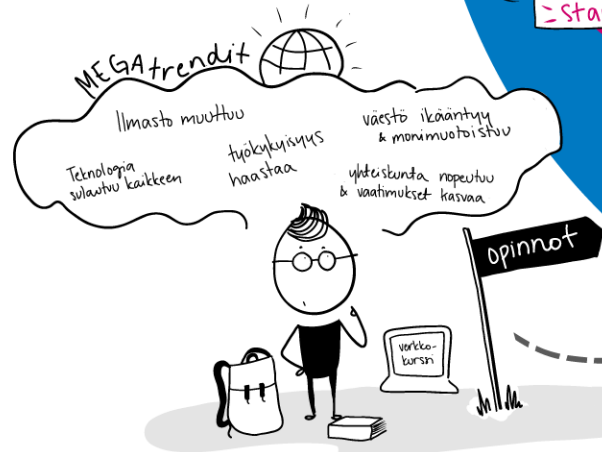 =sta
MEGAtrendit
Ilmasto muuttuu
väestö ikääntyy
& monimuotoistuu
Teknologia
sulautuu kaikkeen
työkykyisyys
haastaa
yhteiskunta nopeutuu
& vaatimukset kasvaa
opinnot
verkko-
kurssi